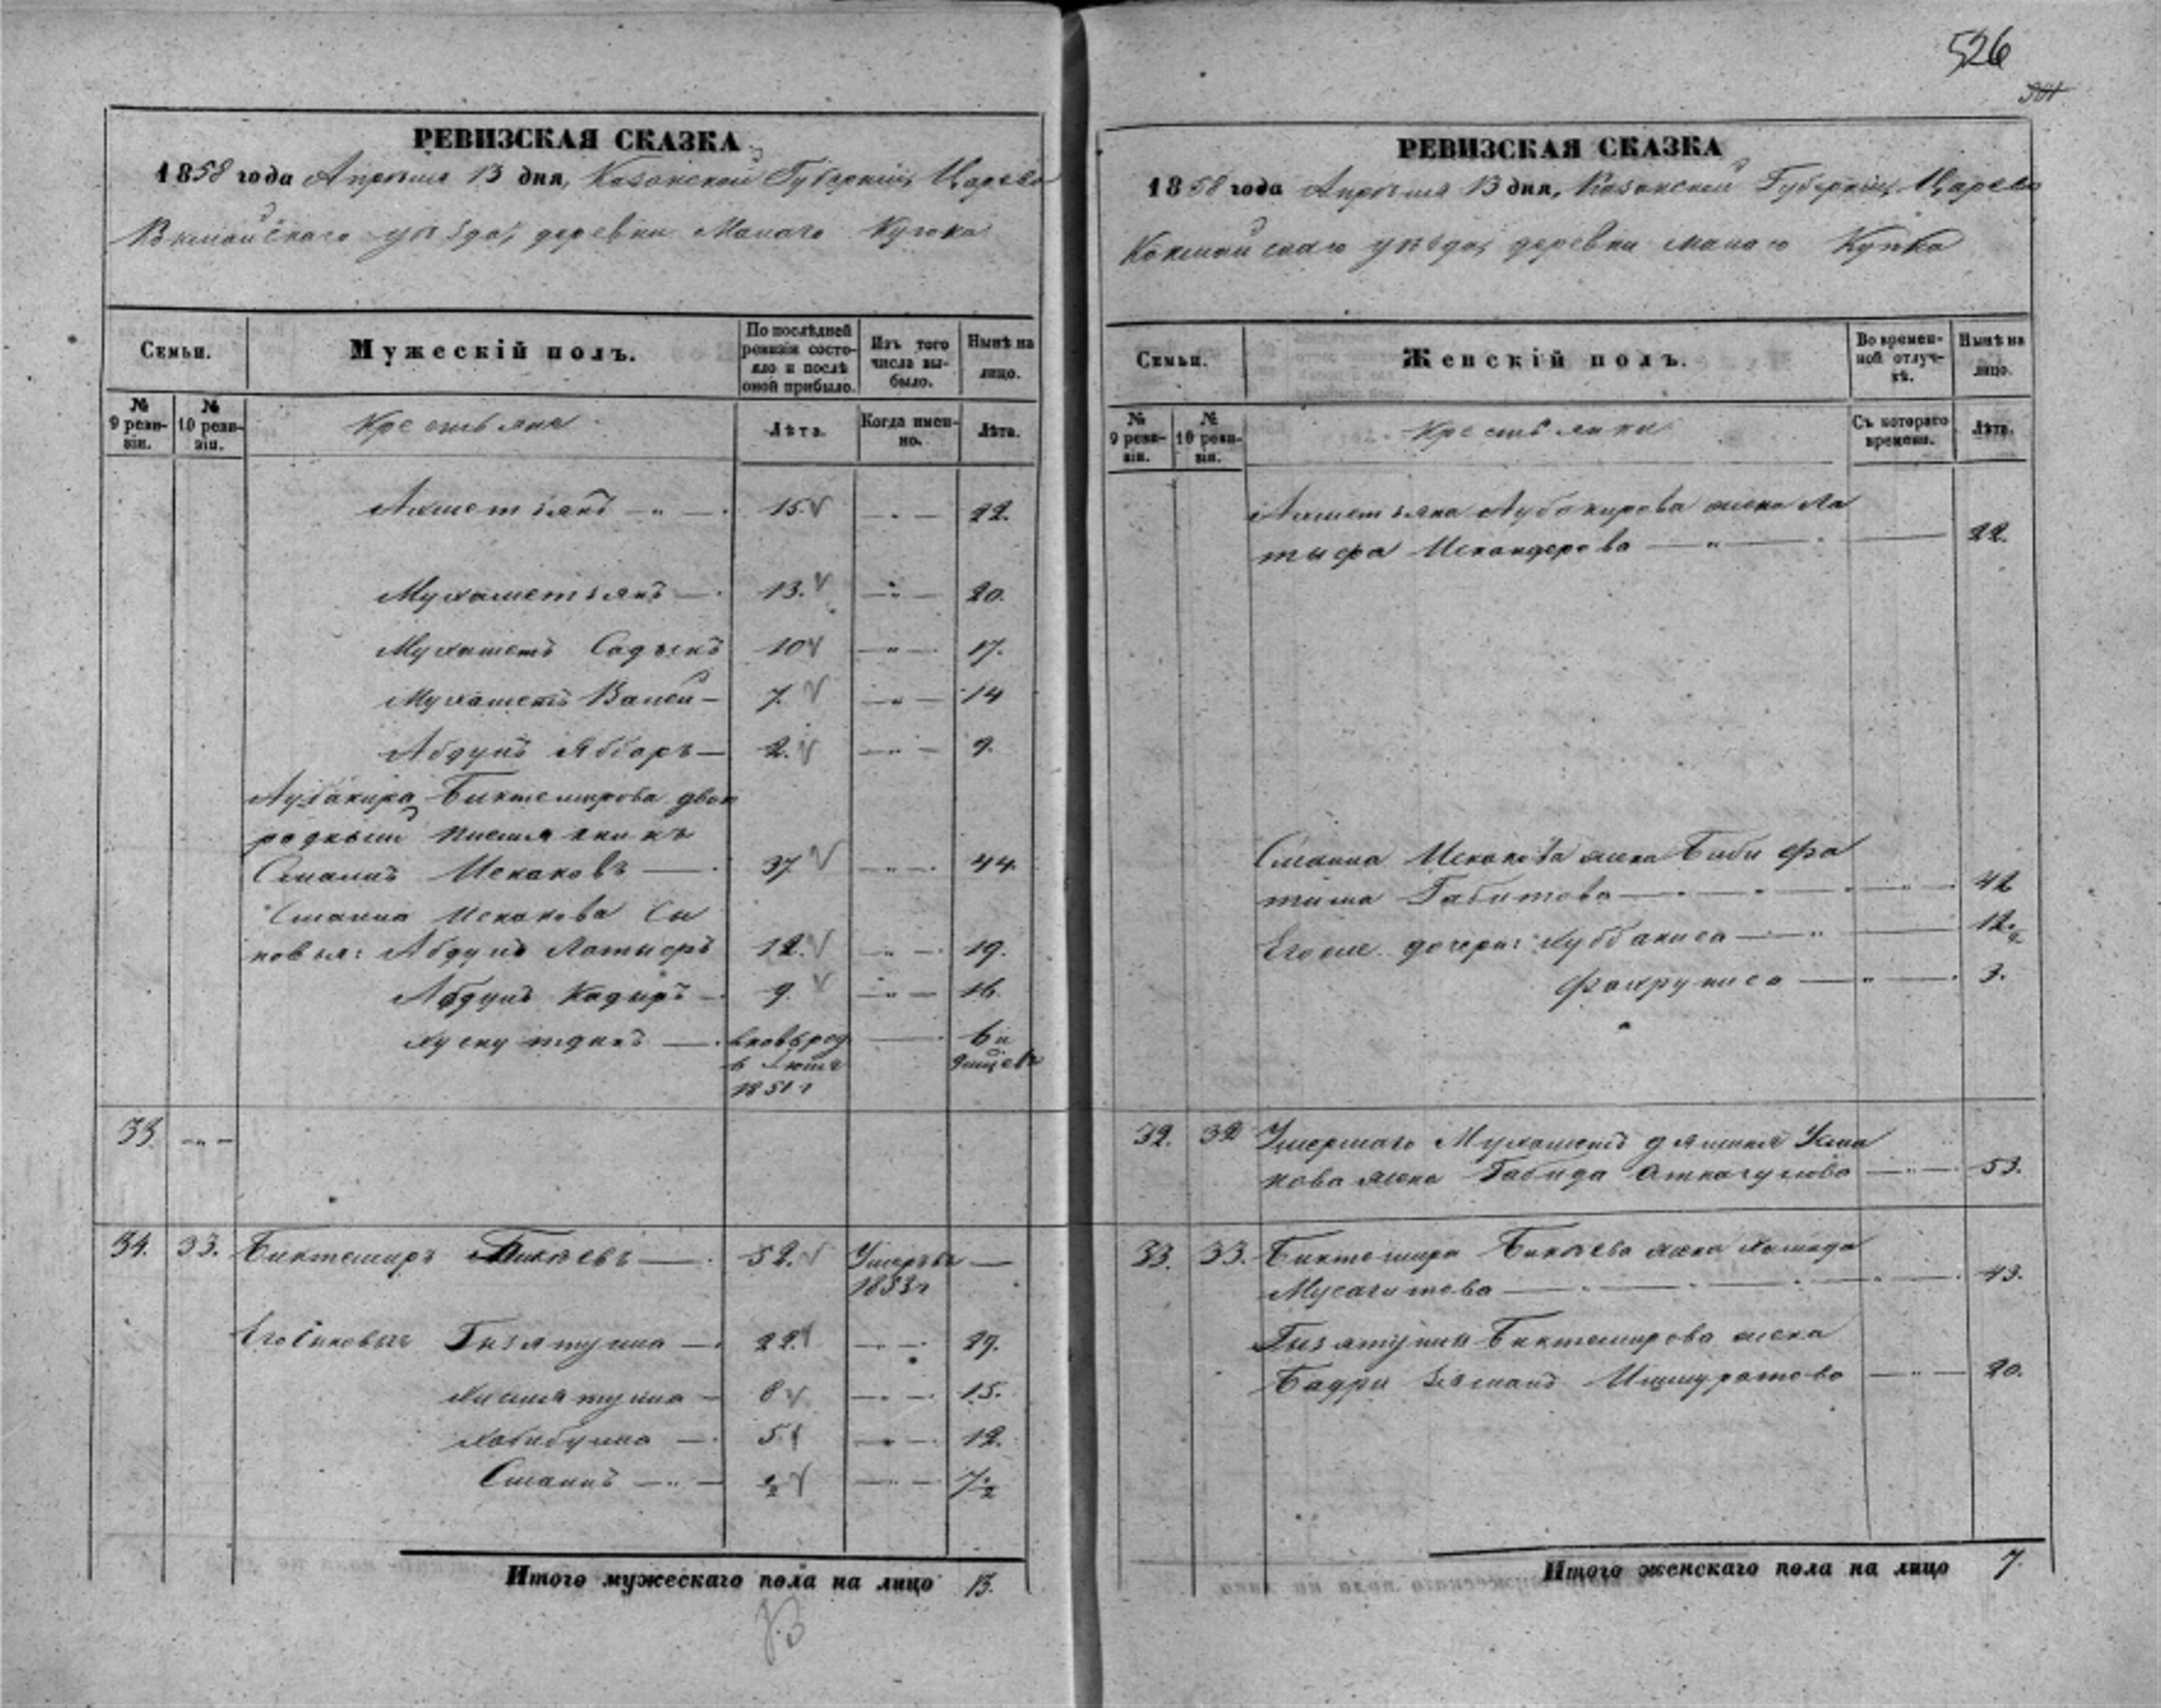 526
301
РЕВИЗСКАЯ СКАЗКА
1858 года Апрѣля 13 дня, Казанской Губерніи, Царево
Кокшайскаго уѣзда, деревни Малаго
Семьи.
Мужескій полъ.
По послѣдней ревизіи состояло и послѣ оной прибыло.
Изъ того числа выбыло.
Нынѣ на лицо.
№ 9 ревизіи.
№ 10 ревизіи.
Крестьяне
Лѣта.
Когда именно.
Лѣта.
Ахметзянъ 15 22.
Мухаметзянъ 13. 20.
Мухаметъ Садыкъ 10 17.
Мухаметъ Валей 7. 14
Абдулъ Яббаръ 2. 9.
Аубакира Биктемирова двою
родный племянникъ
Смаилъ Искаковъ 37 44.
Смаила Искакова Сы
новья: Абдулъ Латыфъ 12. 19.
Абдулъ Кадыръ 9. 16.
Хуснутдинъ вновь род. 6 и
в Іюлѣ 9 мѣсяцевъ
1851 г
33.
34. 33. Биктемиръ Бикѣевъ 52. Умеръ въ
1853 г
Его Сыновья Гизятулла 22. 29.
Хисмятулла 8 15.
Хабибулла 5. 12.
Смаилъ 1/2 7 1/2
Итого мужескаго пола на лицо 13.
РЕВИЗСКАЯ СКАЗКА
1858 года Апрѣля 13 дня, Казанской Губерніи, Царево
Кокшайскаго уѣзда, деревни малаго
Семьи.
Женскій полъ.
Во временной отлучкѣ.
Нынѣ на лицо.
№ 9 ревизіи.
№ 10 ревизіи.
Крестьянки
Съ котораго времени.
Лѣта.
Ахметзяна Аубакирова жена Ла
тыфа Искандерова 22.
Смаила Искакова жена Биби Фа
тима Габитова 42
Его же дочери: Хуббаниса 12.
Фахруниса 3.
32. 32 Умершаго Мухаметъ
нова жена Габида 53.
33. 33. Биктемира Бикѣева жена Хамида
Мусагитова 43.
Гизятуллы Биктемирова жена
Бадри Зяманъ Ишмуратова 20.
Итого женскаго пола на лицо 7